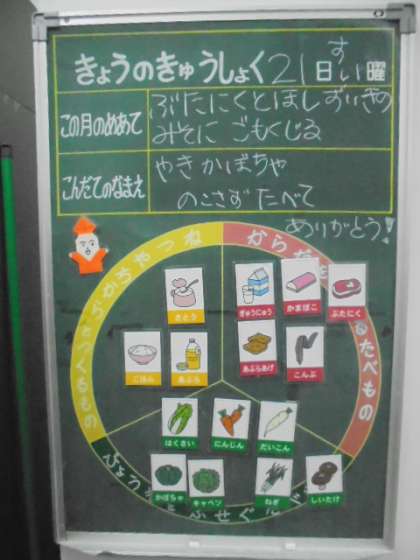 きょうのきゅうしょく 21日 すい曜
この月のめあて
ぶたにくとほしずいきの
みそに ごもくじる
こんだてのなまえ
やきかぼちゃ
のこさずたべて
ありがとう!
さとう
ぎゅうにゅう
かまぼこ
ぶたにく
ごはん
あぶら
あぶらあげ
こんぶ
はくさい
にんじん
だいこん
かぼちゃ
キャベツ
ねぎ
しいたけ